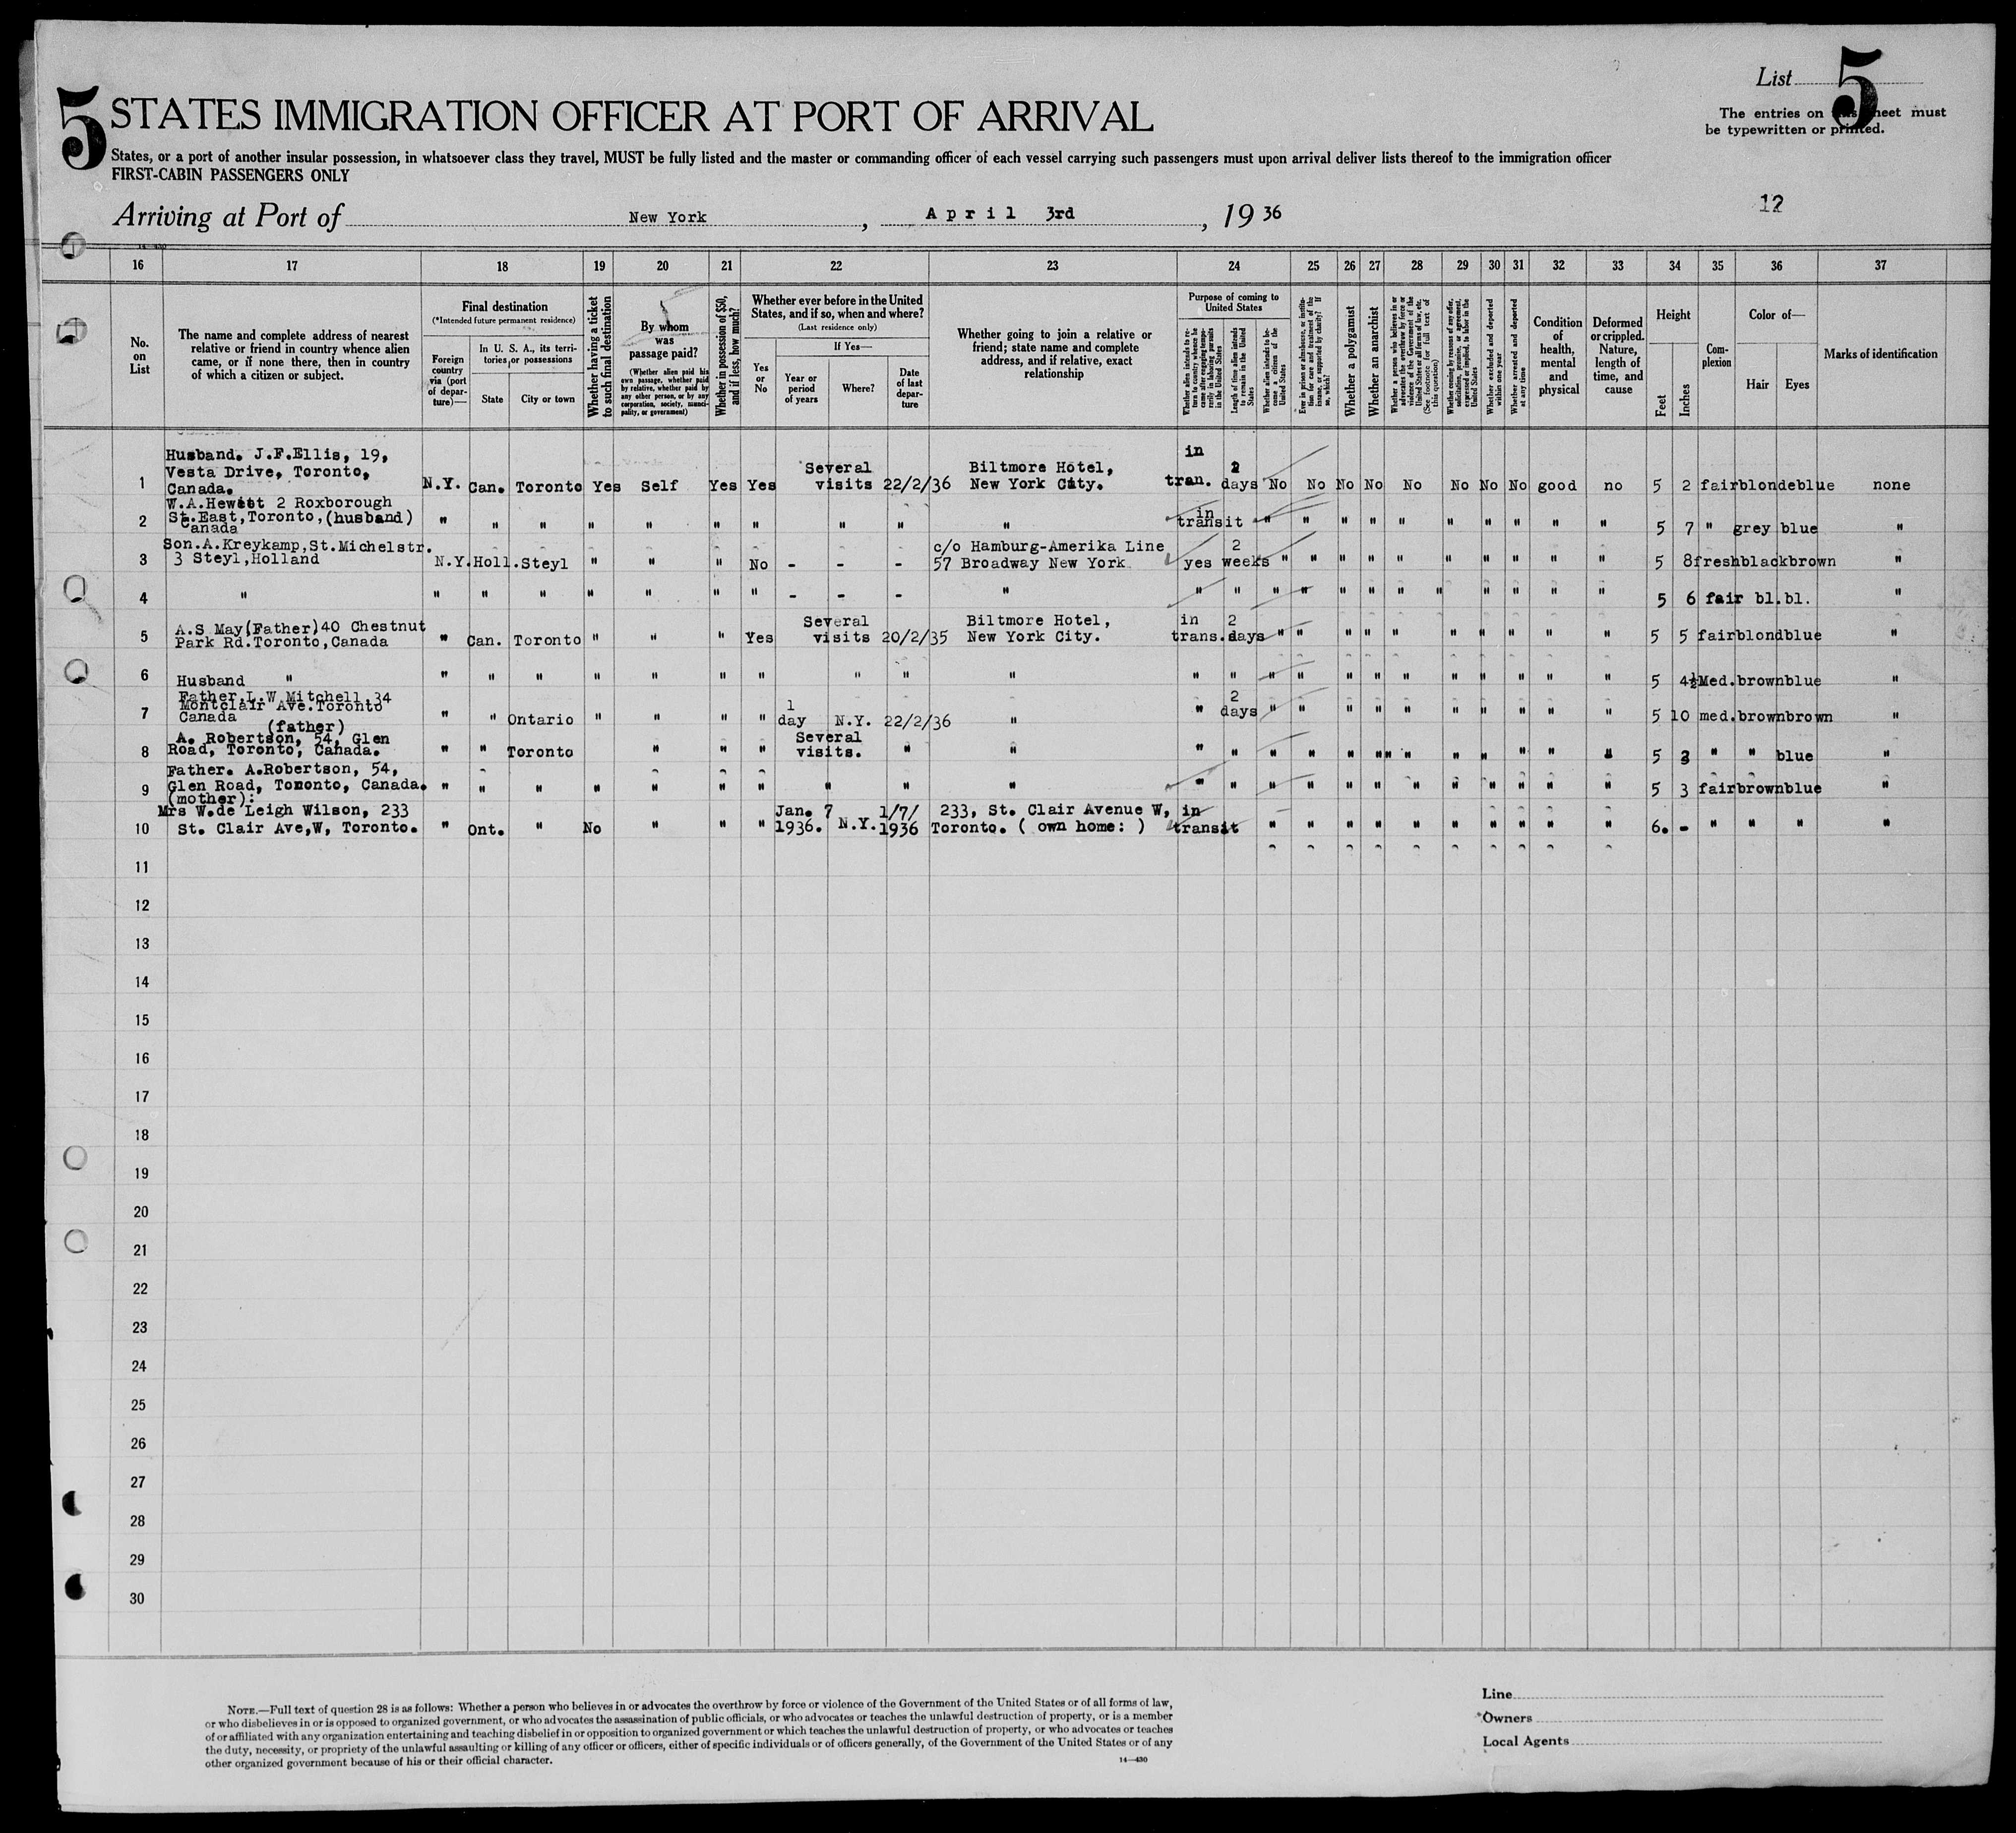 5
List 5
STATES IMMIGRATION OFFICER AT PORT OF ARRIVAL
The entries on this sheet must
be typewritten or printed.
States, or a port of another insular possession, in whatsoever class they travel, MUST be fully listed and the master or commanding officer of each vessel carrying such passengers must upon arrival deliver lists thereof to the immigration officer
FIRST-CABIN PASSENGERS ONLY
12
Arriving at Port of New York, April 3rd, 1936
16 17 18 19 20 21 22 23 24 25 26 27 28 29 30 31 32 33 34 35 36 37
No. on List
The name and complete address of nearest relative or friend in country whence alien came, or if none there, then in country of which a citizen or subject.
Final destination
(*Intended future permanent residence)
Foreign country via (port of departure)—
In U. S. A., its territories, or possessions
State
City or town
Whether having a ticket to such final destination
By whom was passage paid?
(Whether alien paid his own passage, whether paid by relative, whether paid by any other person, or by any corporation, society, municipality, or government)
Whether in possession of $50, and if less, how much?
Whether ever before in the United States, and if so, when and where?
(Last residence only)
Yes or No
If Yes—
Year or period of years
Where?
Date of last departure
Whether going to join a relative or friend; state name and complete address, and if relative, exact relationship
Purpose of coming to United States
Whether alien intends to return to country whence he came after engaging temporarily in laboring pursuits in the United States
Length of time alien intends to remain in the United States
Whether alien intends to become a citizen of the United States
Ever in prison or almshouse, or institution for care and treatment of the insane, or supported by charity? If so, which?
Whether a polygamist
Whether an anarchist
Whether a person who believes in or advocates the overthrow by force or violence of the Government of the United States or all forms of law, etc. (See footnote for full text of this question)
Whether coming by reasons of any offer, solicitation, promise, or agreement, expressed or implied, to labor in the United States
Whether excluded and deported within one year
Whether arrested and deported at any time
Condition of health, mental and physical
Deformed or crippled. Nature, length of time, and cause
Height
Feet
Inches
Complexion
Color of—
Hair
Eyes
Marks of identification
1 Husband. J.F.Ellis, 19, Vesta Drive, Toronto, Canada. N.Y. Can. Toronto Yes Self Yes Yes Several visits 22/2/36 Biltmore Hotel, New York City. in tran. 2 days No No No No No No No No good no 5 2 fair blonde blue none
2 W.A.Hewitt 2 Roxborough St.East,Toronto,(husband) Canada " " " " " " " " " " in transit " " " " " " " " " " 5 7 " grey blue "
3 Son.A.Kreykamp,St.Michelstr. 3 Steyl,Holland N.Y. Holl. Steyl " " " No - - - c/o Hamburg-Amerika Line 57 Broadway New York yes 2 weeks " " " " " " " " " " 5 8 fresh black brown "
4 " " " " " " " " - - - " " " " " " " " " " " " " 5 6 fair bl. bl. "
5 A.S May(Father)40 Chestnut Park Rd.Toronto,Canada " Can. Toronto " " " Yes Several visits 20/2/35 Biltmore Hotel, New York City. in trans. 2 days " " " " " " " " " " 5 5 fair blond blue "
6 Husband " " " " " " " " " " " " " " " " " " " " " " " 5 4½ Med. brown blue "
7 Father L.W Mitchell 34 Montclair Ave.Toronto Canada " " Ontario " " " " 1 day N.Y. 22/2/36 " " 2 days " " " " " " " " " " 5 10 med. brown brown "
8 (father) A. Robertson, 54, Glen Road, Toronto, Canada. " " Toronto " " " Several visits. " " " " " " " " " " " " " " " 5 3 " " blue "
9 Father. A.Robertson, 54, Glen Road, Toronto, Canada. " " " " " " " " " " " " " " " " " " " " " " 5 3 fair brown blue "
10 (mother): Mrs W.de Leigh Wilson, 233 St. Clair Ave,W, Toronto. " Ont. " No " " " Jan. 7 1936. N.Y. 1/7/1936 233, St. Clair Avenue W, Toronto. ( own home: ) in transit " " " " " " " " " " 6. - " " " "
11
12
13
14
15
16
17
18
19
20
21
22
23
24
25
26
27
28
29
30
NOTE.—Full text of question 28 is as follows: Whether a person who believes in or advocates the overthrow by force or violence of the Government of the United States or of all forms of law,
or who disbelieves in or is opposed to organized government, or who advocates the assassination of public officials, or who advocates or teaches the unlawful destruction of property, or is a member
of or affiliated with any organization entertaining and teaching disbelief in or opposition to organized government or which teaches the unlawful destruction of property, or who advocates or teaches
the duty, necessity, or propriety of the unlawful assaulting or killing of any officer or officers, either of specific individuals or of officers generally, of the Government of the United States or of any
other organized government because of his or their official character.
14—430
Line
Owners
Local Agents